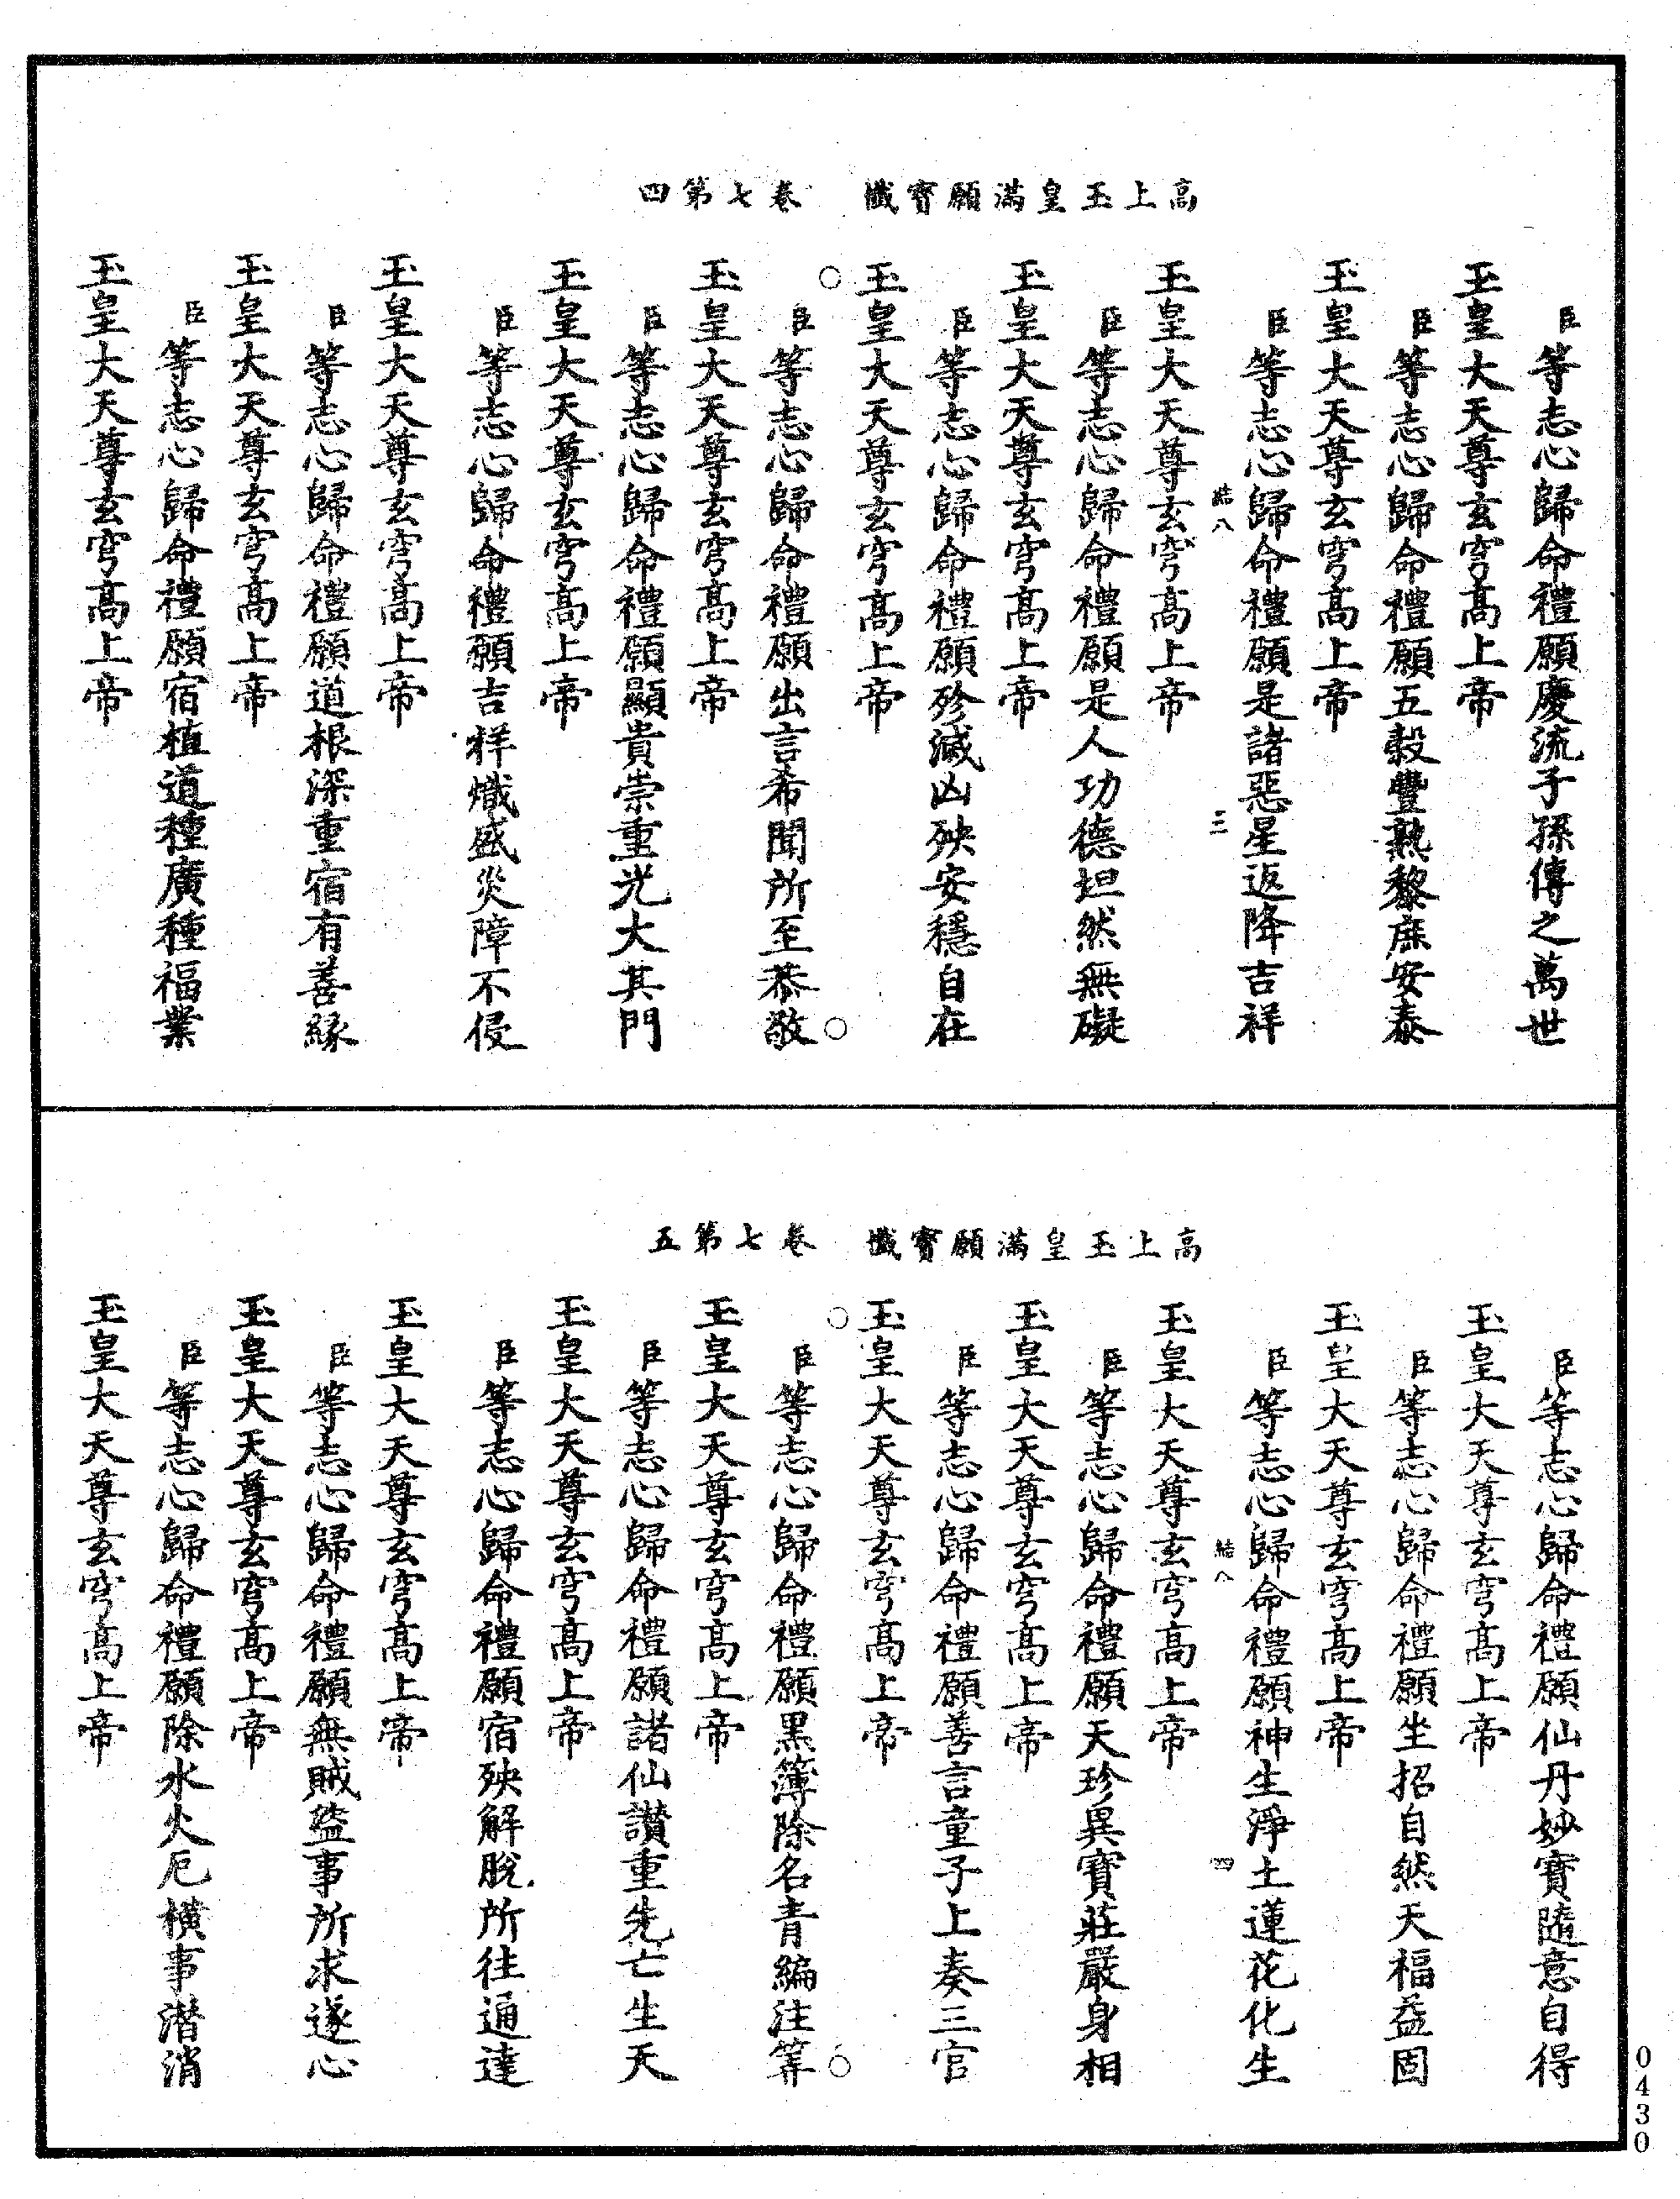 高上玉皇滿願寶懺　卷七第四
臣等志心歸命禮願慶流子孫傳之萬世
玉皇大天尊玄穹高上帝
臣等志心歸命禮願五穀豐熟黎庶安泰
玉皇大天尊玄穹高上帝
臣等志心歸命禮願是諸惡星返降吉祥
結八　三
玉皇大天尊玄穹高上帝
臣等志心歸命禮願是人功德坦然無礙
玉皇大天尊玄穹高上帝
臣等志心歸命禮願殄滅凶殃安穩自在
玉皇大天尊玄穹高上帝
臣等志心歸命禮願出言希聞所至恭敬
玉皇大天尊玄穹高上帝
臣等志心歸命禮願顯貴崇重光大其門
玉皇大天尊玄穹高上帝
臣等志心歸命禮願吉祥熾盛災障不侵
玉皇大天尊玄穹高上帝
臣等志心歸命禮願道根深重宿有善緣
玉皇大天尊玄穹高上帝
臣等志心歸命禮願宿植道種廣種福業
玉皇大天尊玄穹高上帝
高上玉皇滿願寶懺　卷七第五
臣等志心歸命禮願仙丹妙寶隨意自得
玉皇大天尊玄穹高上帝
臣等志心歸命禮願坐招自然天福益固
玉皇大天尊玄穹高上帝
臣等志心歸命禮願神生淨土蓮花化生
結八　四
玉皇大天尊玄穹高上帝
臣等志心歸命禮願天珍異寶莊嚴身相
玉皇大天尊玄穹高上帝
臣等志心歸命禮願善言童子上奏三官
玉皇大天尊玄穹高上帝
臣等志心歸命禮願黑簿除名青編注筭
玉皇大天尊玄穹高上帝
臣等志心歸命禮願諸仙讚重先亡生天
玉皇大天尊玄穹高上帝
臣等志心歸命禮願宿殃解脫所往通達
玉皇大天尊玄穹高上帝
臣等志心歸命禮願無賊盜事所求遂心
玉皇大天尊玄穹高上帝
臣等志心歸命禮願除水火厄橫事潛消
玉皇大天尊玄穹高上帝
0430